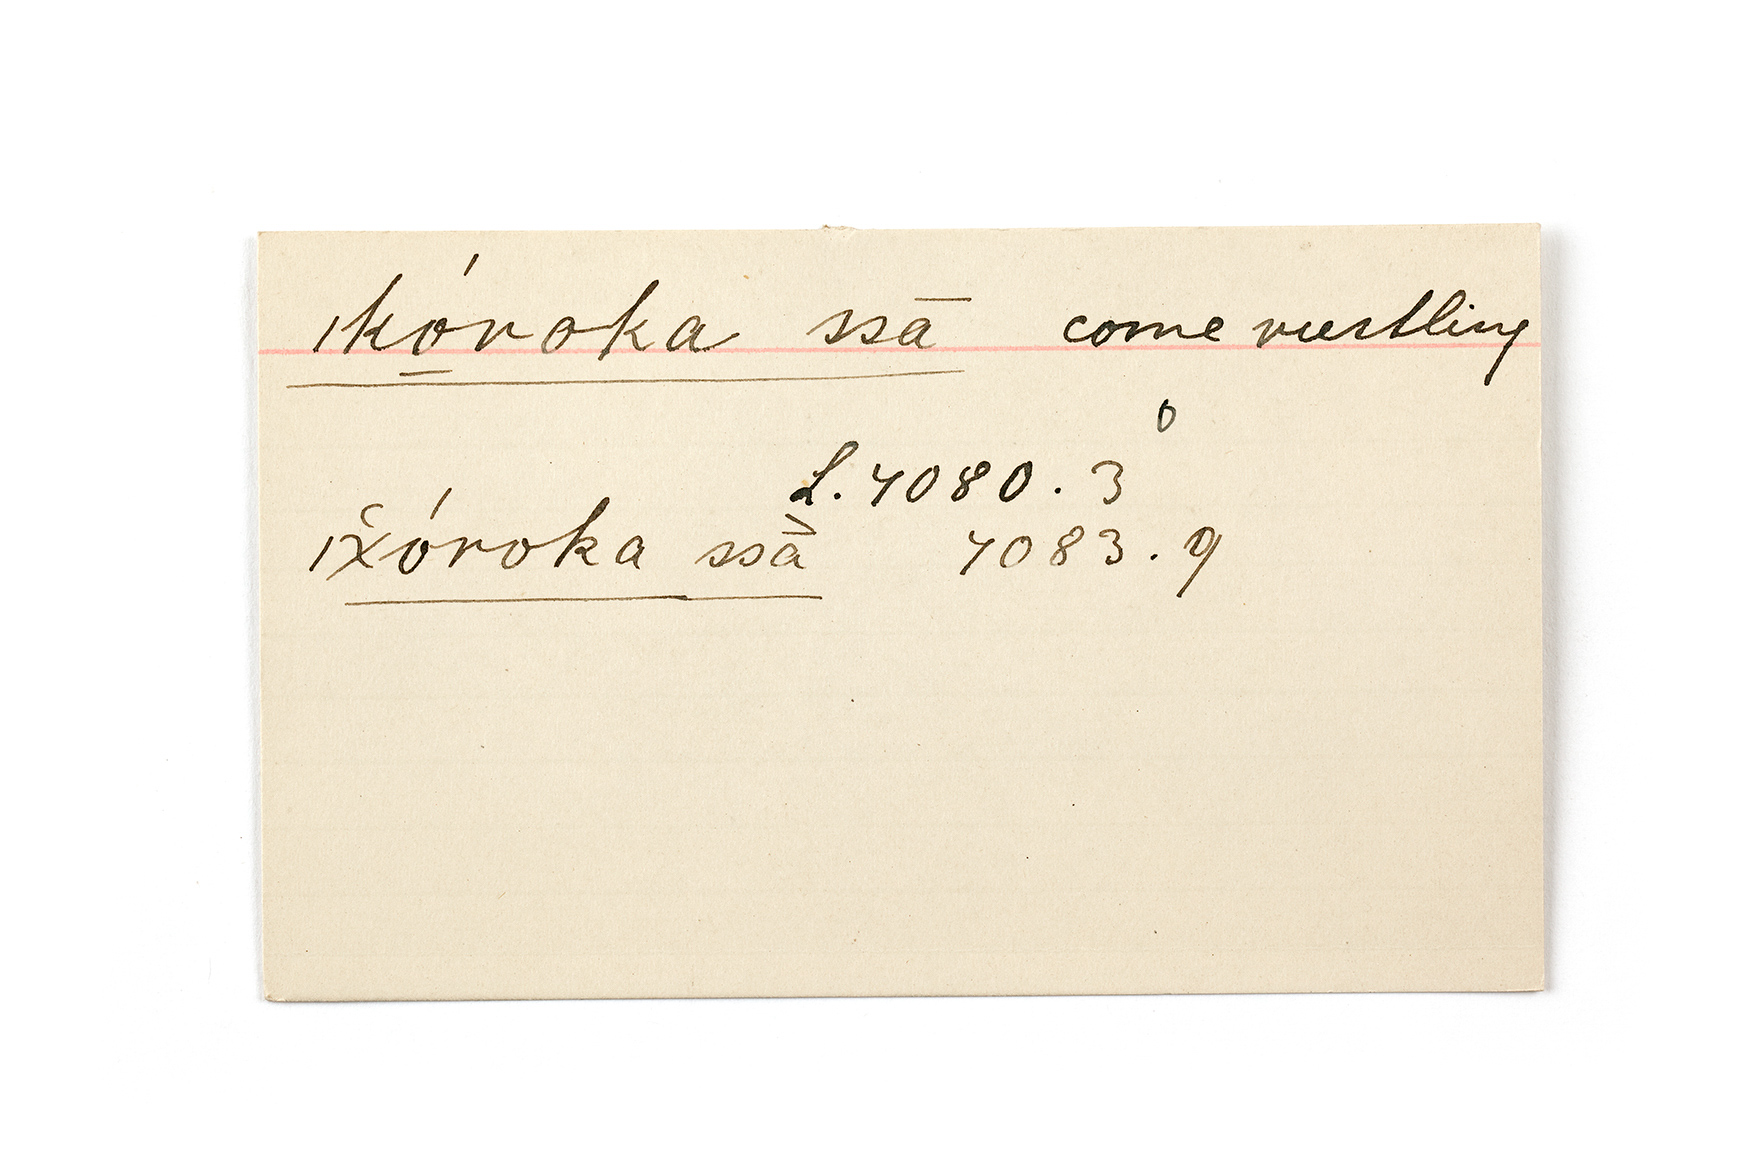 ıkó̱roka ssā come rustling
o
L. 4080. 3
ıx̆óroka ssà̄ 4083. 9